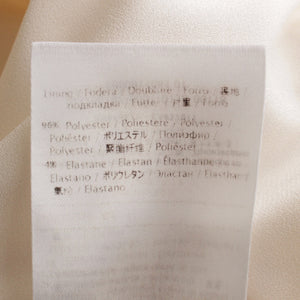 Lining / Fodera / Doublure / Forro / 裏地
подкладка / Futter / 衬里 /
96% Polyester / Poliestere / Polyester /
Poliéster / ポリエステル /
Polyester / 聚酯纤维 / Poliéster
4% Elastane / Elastan / Élasthanne
Elastano / ポリウレタン / Эластан / Elasthan /
氨纶 / Elastano